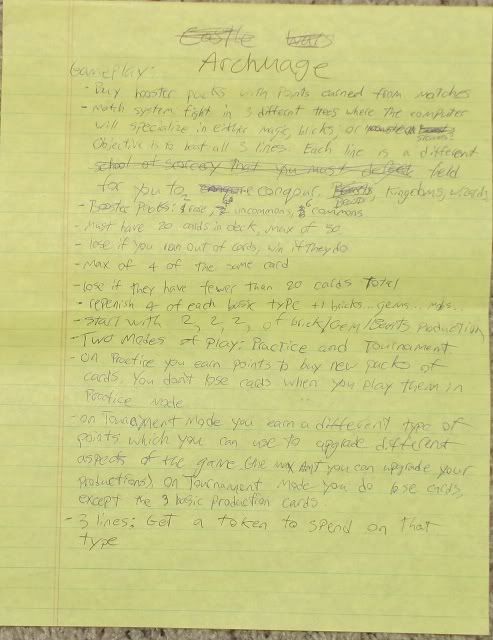 Castle Wars
Archmage
Gameplay:
- Buy booster packs with points earned from matches
- Math system fight in 3 differnt trees where the computer
will specialize in either magic, bricks, or
Objective is to beat all 3 lines. Each line is a different
school of sorcery that you must defeat field
for you to conqour. Beasts, Kingdoms, wizards
- Booster Packs: 1 rare, uncommons, 6 commons
- Must have 20 cards in deck, max of 50
- lose if you run out of cards, win if they do
- Max of 4 of the same card
- lose if they have fewer than 20 cards total
- repenish 4 of each basic type +1 bricks... gems... mobs...
- Start with 2, 2, 2, of brick/Gem/Beasts Production
- Two Modes of Play: Practice and Tournament
- On Practice you earn points to buy new packs of
cards. You don't lose cards when you play them in
Practice Mode
- on Tournyment Mode you earn a different type of
points which you can use to upgrade different
aspects of the game (the max Amt you can upgrade your
productions). On Tournament Mode you do lose cards,
except the 3 basic production cards.
- 3 lines; Get a token to spend on that
type